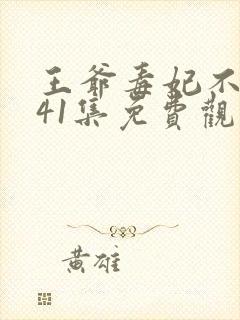 王爺毒妃不
41集免費觀
黃雄